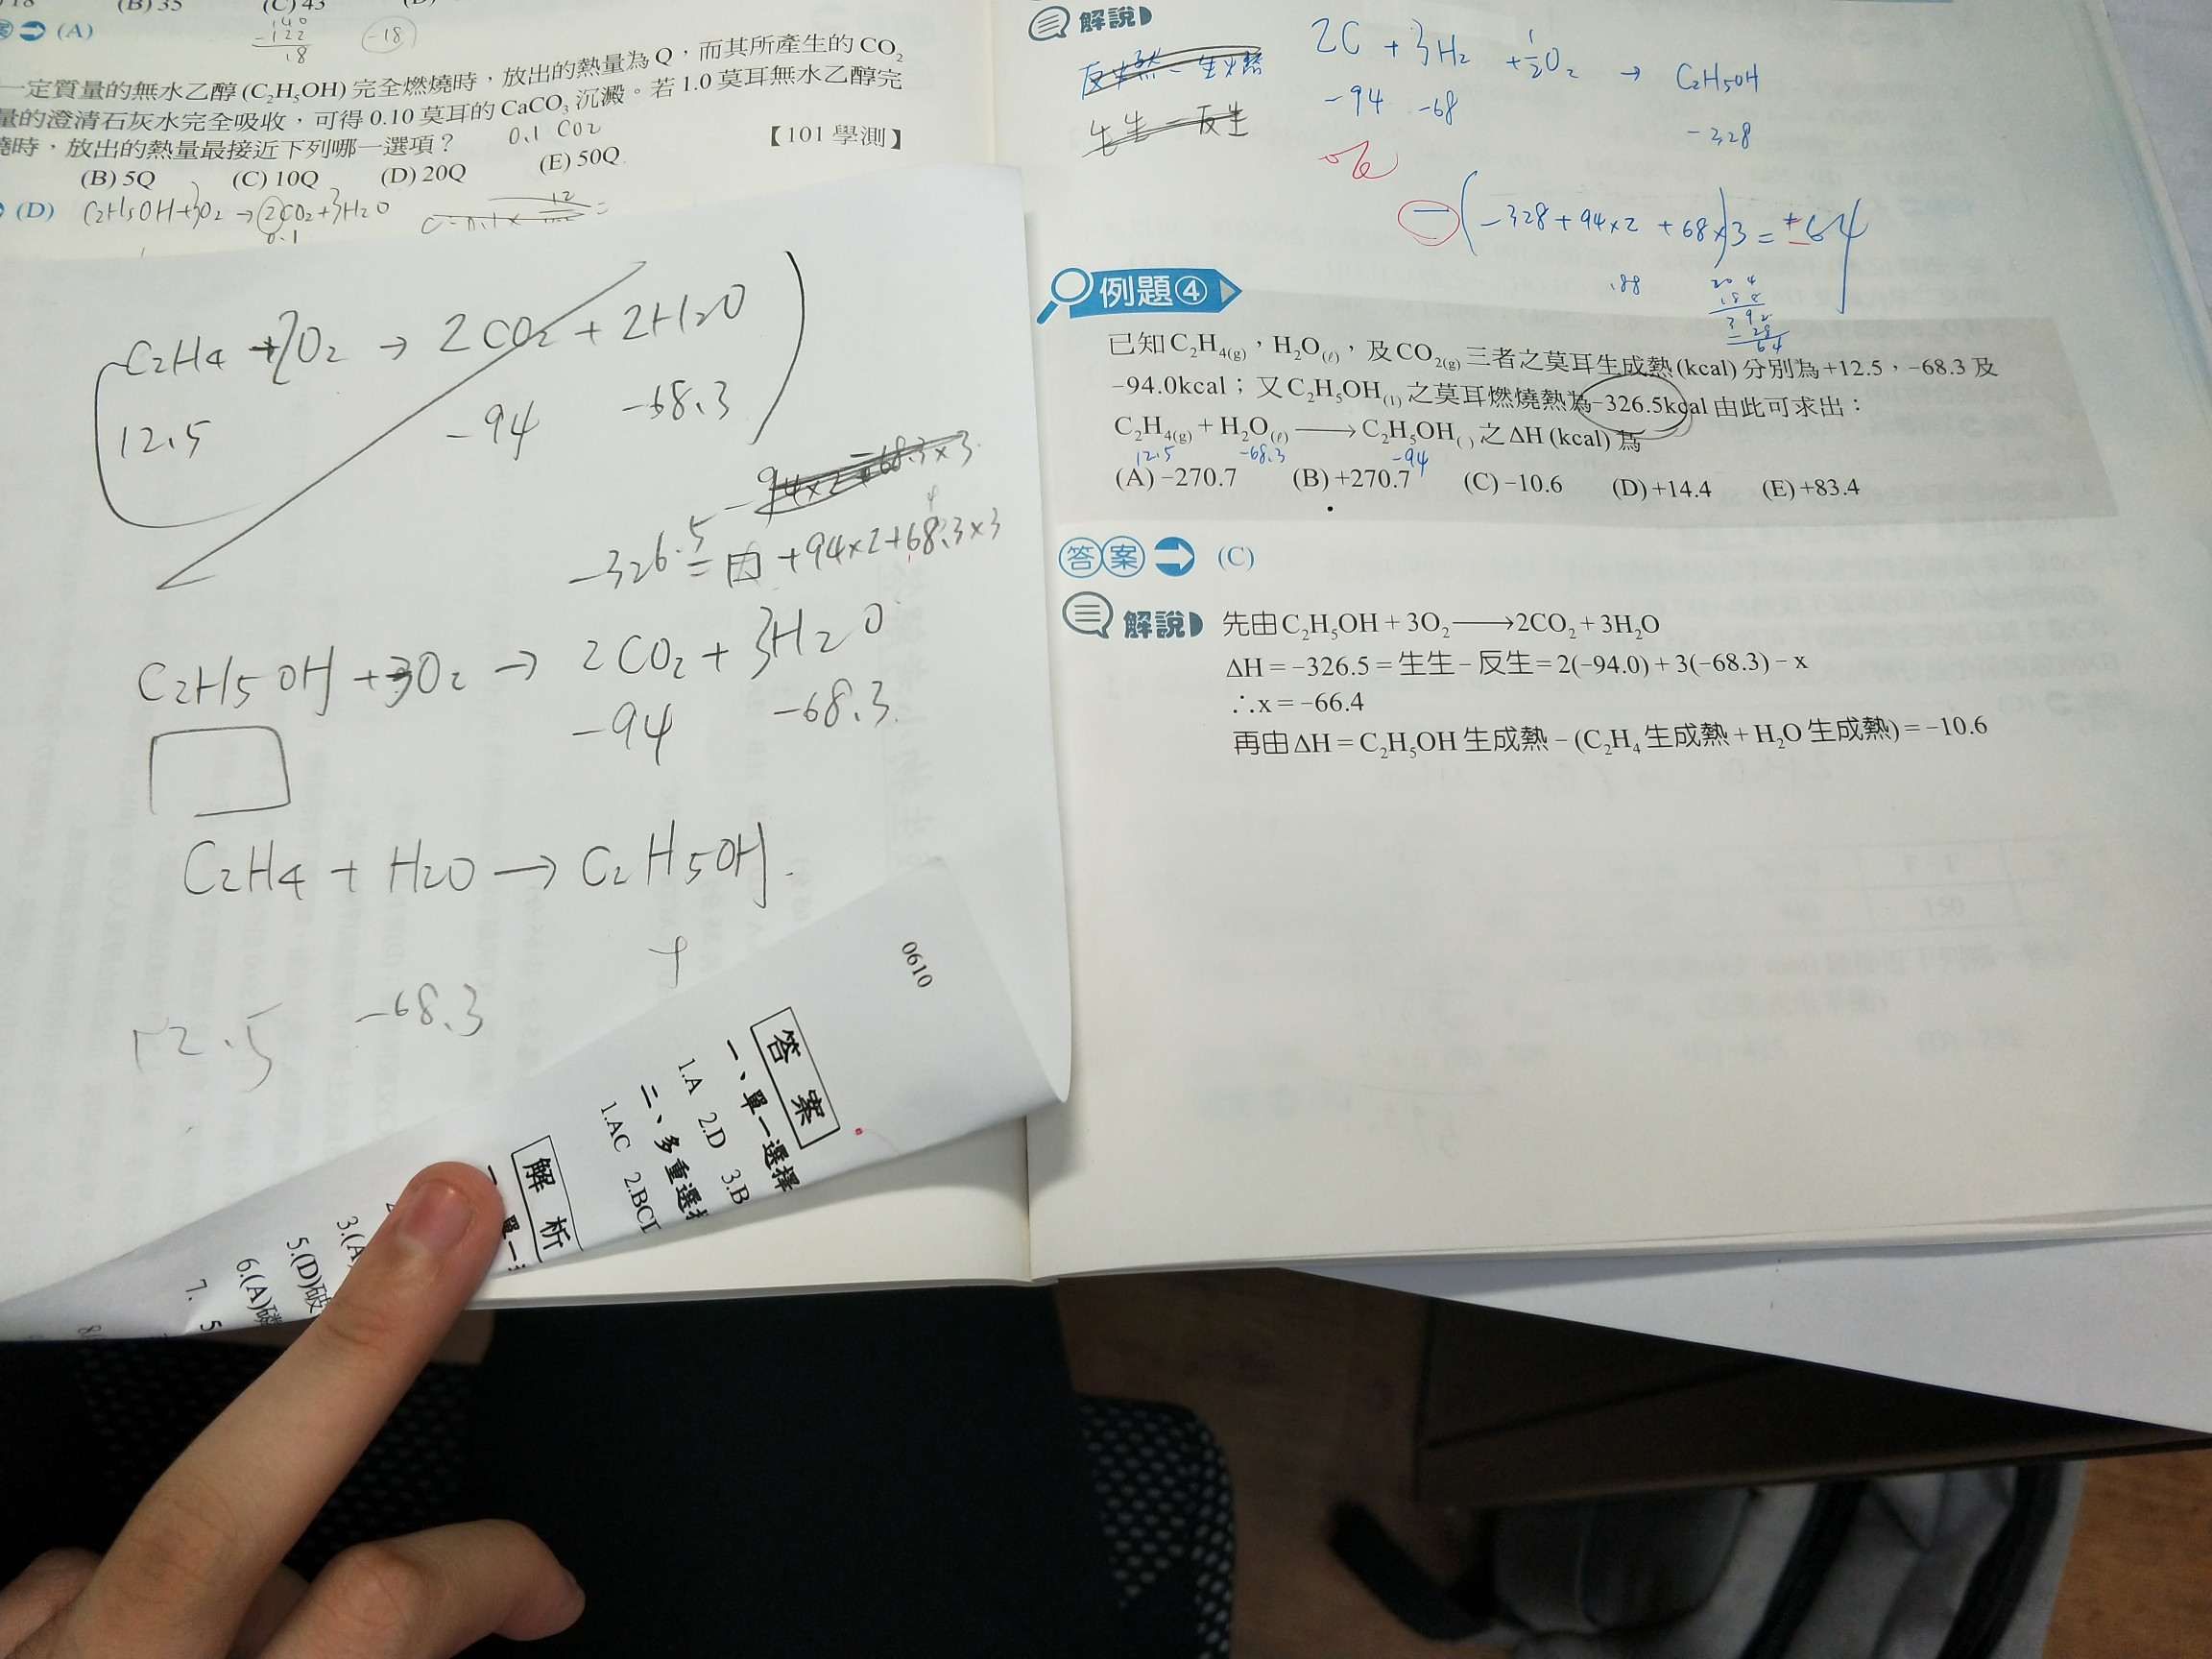 (B) 35 (C) 43
(A)
140
-122
18
-18
一定質量的無水乙醇(C₂H₅OH)完全燃燒時，放出的熱量為Q，而其所產生的CO₂
量的澄清石灰水完全吸收，可得0.10莫耳的CaCO₃沉澱。若1.0莫耳無水乙醇完
燒時，放出的熱量最接近下列哪一選項？
0.1 CO₂
【101學測】
(B) 5Q (C) 10Q (D) 20Q (E) 50Q
(D) C₂H₅OH+3O₂→2CO₂+3H₂O
0.1
C₂H₄+O₂→2CO₂+2H₂O
12.5 -94 -68.3
-94×2-68.3×3
-326.5= +94×2+68.3×3
C₂H₅OH+3O₂→2CO₂+3H₂O
-94 -68.3
C₂H₄+H₂O→C₂H₅OH
12.5 -68.3
0610
答案
一、單一選擇
1.A 2.D 3.B
二、多重選擇
1.AC 2.BC
解析
一、單一
3.(A)
5.(D)破
6.(A)磷
7.
解說
反燃-生燃
生生-反生
2C+3H₂+½O₂→C₂H₅OH
-94 -68
-328
-(-328+94×2+68×3)=±64
188
204
188
392
328
64
例題④
已知C₂H₄(g)，H₂O(ℓ)，及CO₂(g)三者之莫耳生成熱(kcal)分別為+12.5，-68.3及
-94.0kcal；又C₂H₅OH(l)之莫耳燃燒熱為-326.5kcal由此可求出：
C₂H₄(g)+H₂O(ℓ)⟶C₂H₅OH( )之ΔH(kcal)為
12.5 -68.3 -94
(A) -270.7 (B) +270.7 (C) -10.6 (D) +14.4 (E) +83.4
答案 (C)
解說 先由C₂H₅OH+3O₂⟶2CO₂+3H₂O
ΔH=-326.5=生生-反生=2(-94.0)+3(-68.3)-x
∴x=-66.4
再由ΔH=C₂H₅OH生成熱-(C₂H₄生成熱+H₂O生成熱)=-10.6